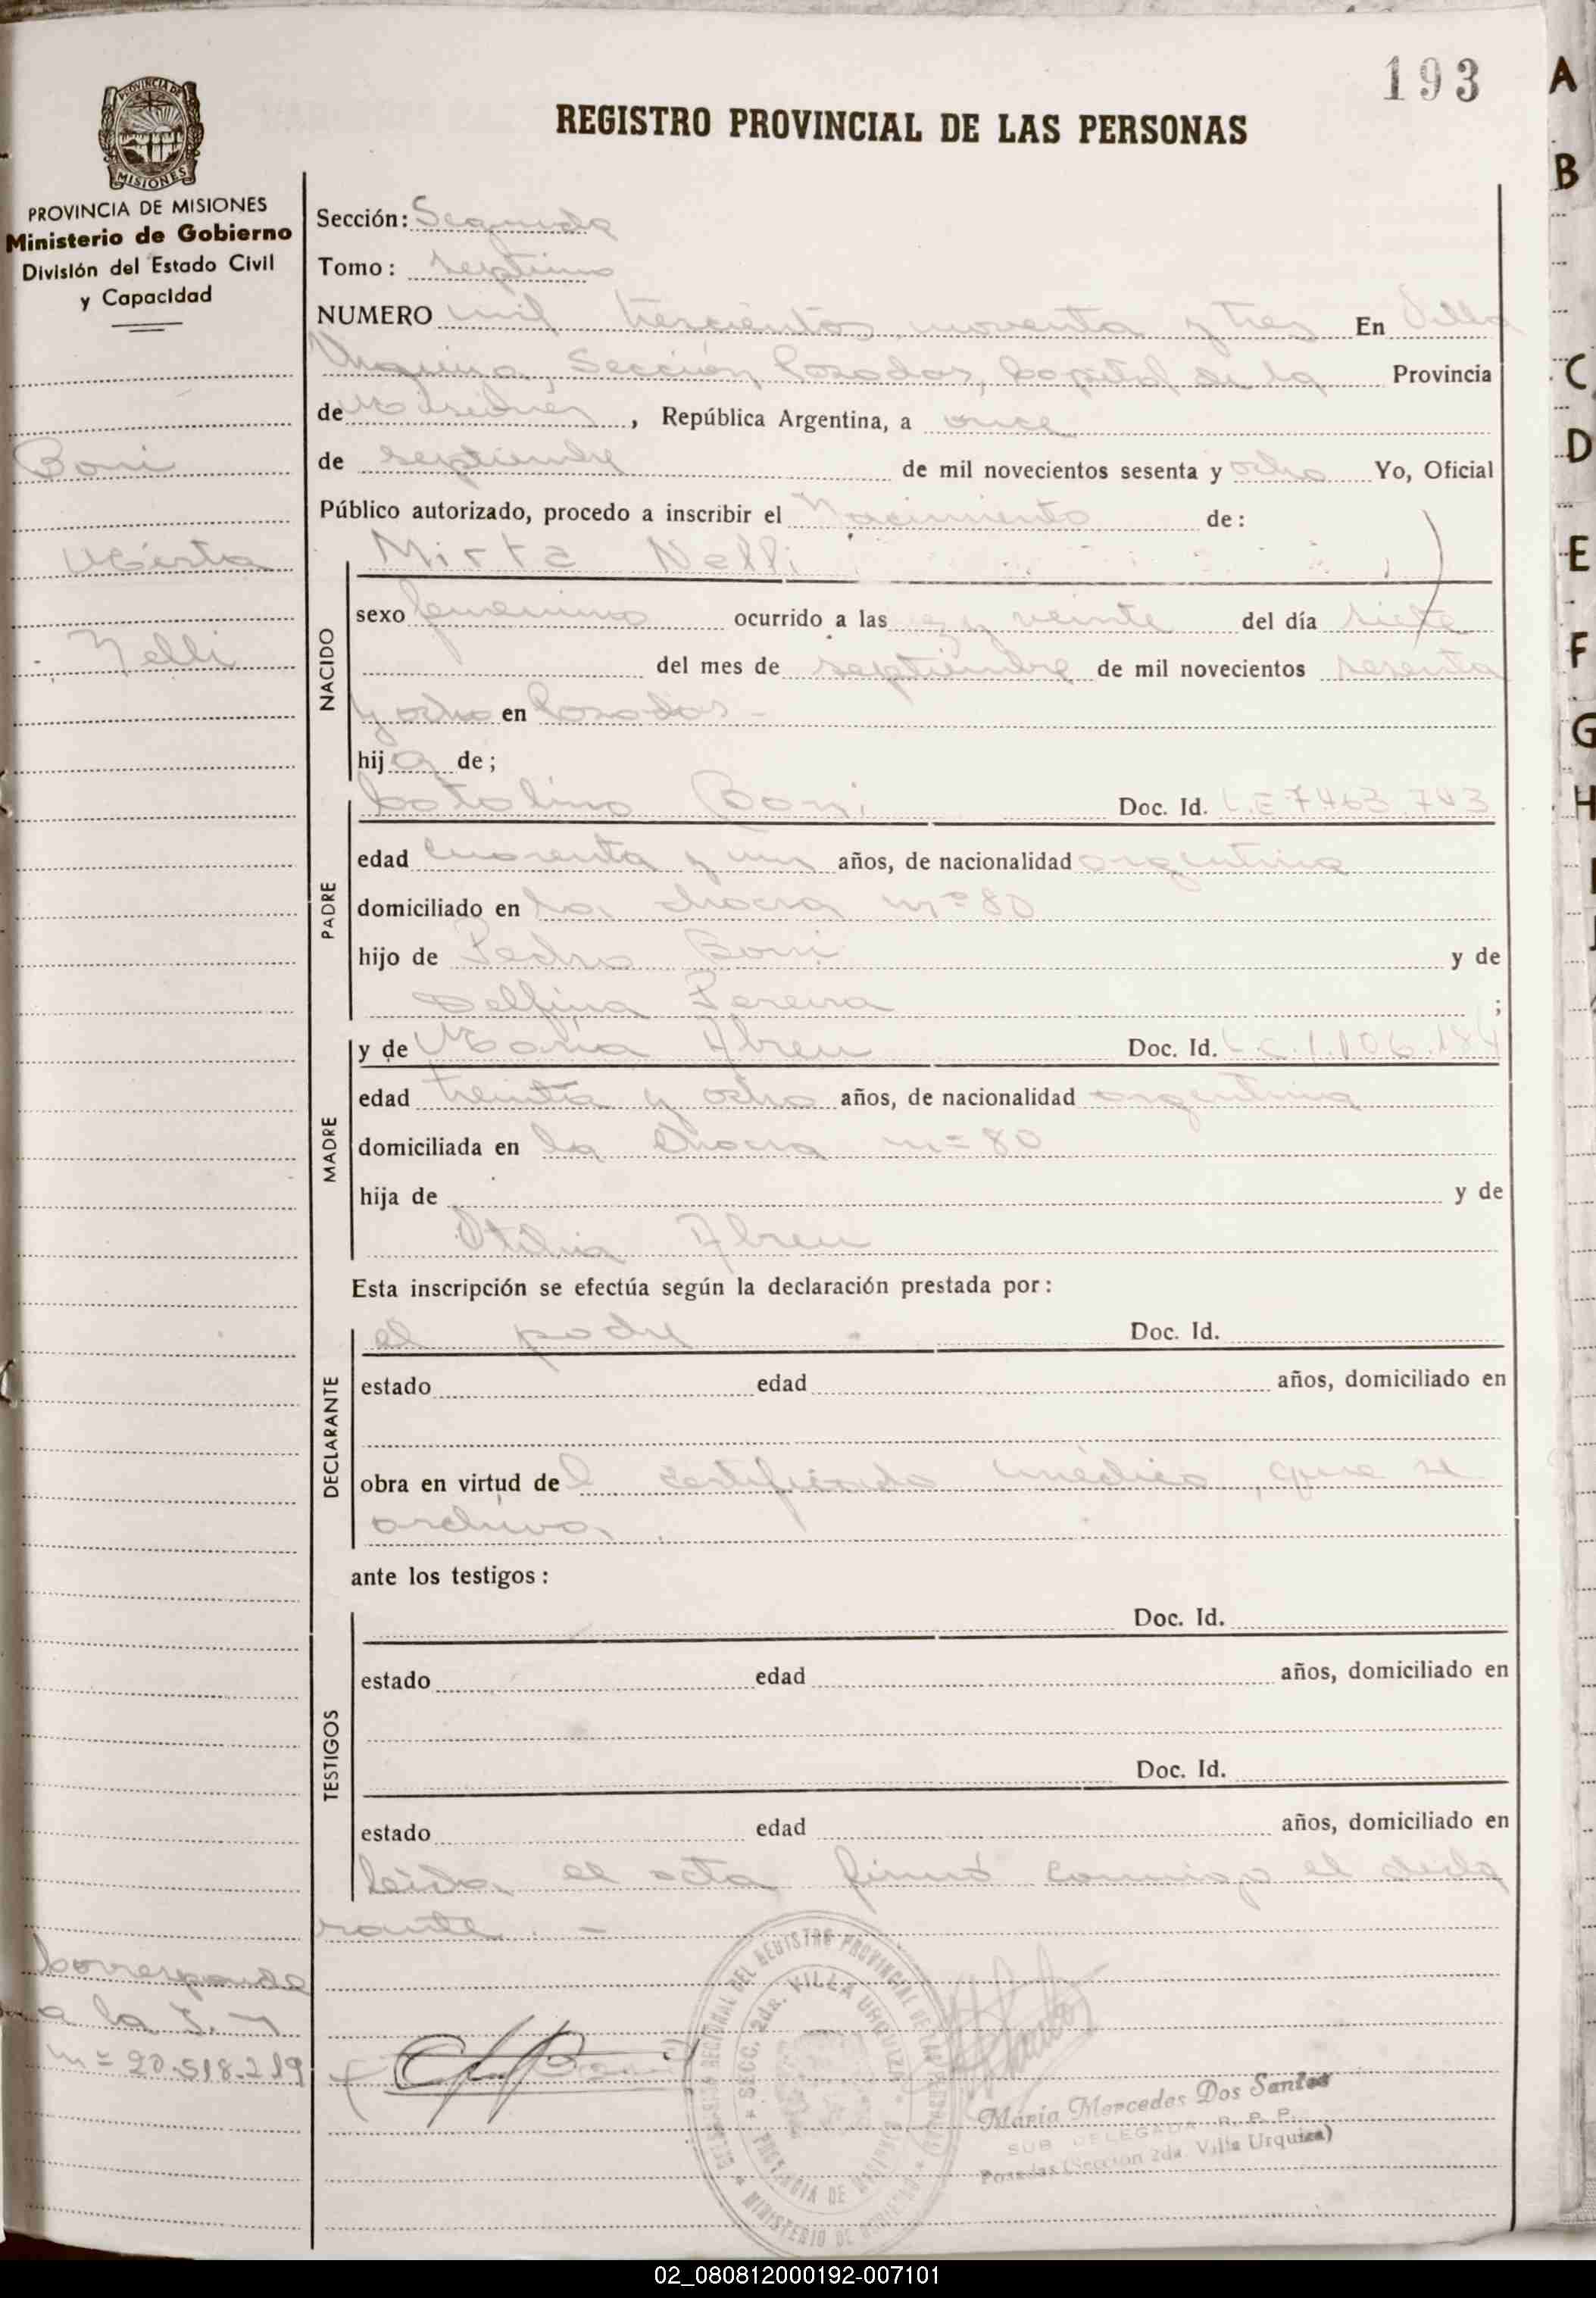 193
REGISTRO PROVINCIAL DE LAS PERSONAS
PROVINCIA DE MISIONES
MISIONES
PROVINCIA DE MISIONES
Ministerio de Gobierno
División del Estado Civil
y Capacidad
Boni
Mirta
Nelli
Sección: Segunda
Tomo: septimo
NUMERO mil trescientos noventa y tres En Villa
Urquiza, Sección Posadas, Capital de la Provincia
de Misiones, República Argentina, a once
de septiembre de mil novecientos sesenta y ocho Yo, Oficial
Público autorizado, procedo a inscribir el Nacimiento de:
NACIDO
Mirta Nelli
sexo femenino ocurrido a las y veinte del día siete
del mes de septiembre de mil novecientos sesenta
y ocho en Posadas -
hija de;
PADRE
Catalino Boni Doc. Id. L.E 7463.743
edad cuarenta y un años, de nacionalidad argentina
domiciliado en la chacra nº 80
hijo de Pedro Boni y de
Delfina Pereira ;
MADRE
y de María Abreu Doc. Id. L.C. 1.106.184
edad treinta y ocho años, de nacionalidad argentina
domiciliada en la chacra n= 80
hija de y de
Otilia Abreu
Esta inscripción se efectúa según la declaración prestada por:
DECLARANTE
el padre Doc. Id.
estado edad años, domiciliado en
obra en virtud del certificado médico, que se
archiva.
ante los testigos:
TESTIGOS
Doc. Id.
estado edad años, domiciliado en
Doc. Id.
estado edad años, domiciliado en
Leída el acta, firmó conmigo el decla
rante. -
Corresponde
a la I. -
n= 20.518.219
SECC. 2da. VILLA URQUIZA
María Mercedes Dos Santos
SUB DELEGADA R. P. P.
Posadas (Sección 2da. Villa Urquiza)
A
B
C
D
E
F
G
H
02_080812000192-007101